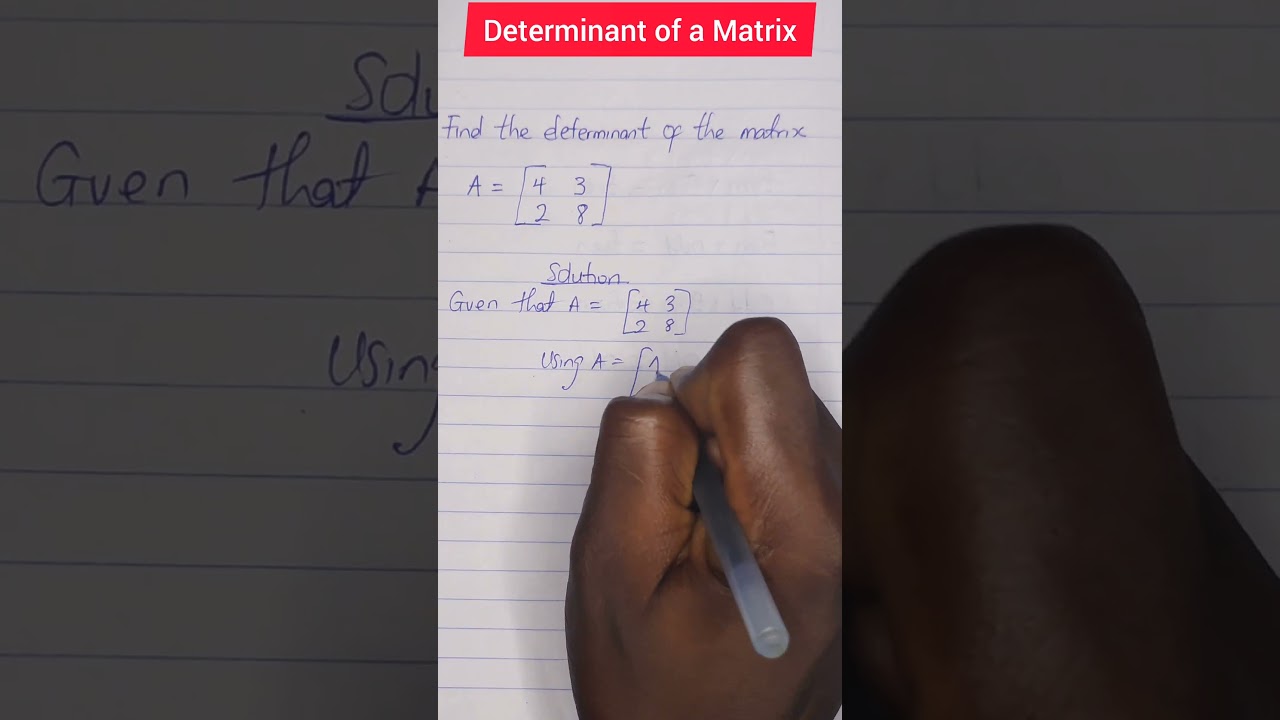 Determinant of a Matrix
Find the determinant of the matrix
A = [4 3
2 8]
Solution
Given that A = [4 3
2 8]
Using A = [
Solu
Given that A
Using